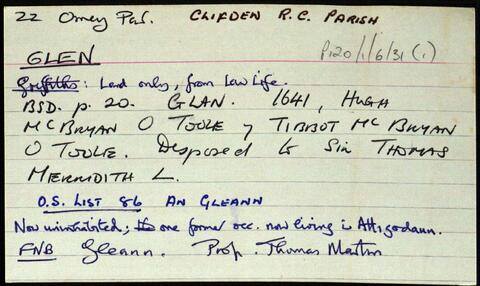 22 Omey Par. CLIFDEN R.C. PARISH
P120/1/6/31 (1)
GLEN
Griffiths: Land only, from Law Life.
BSD. p. 20. GLAN. 1641, HUGH
MCBRYAN O TOOLE y TIBBOT MC BRYAN
O TOOLE. Disposed to Sir THOMAS
MERRIDITH L.
O.S. LIST 86 AN GLEANN
Now uninhabited; one former occ. now living in Attigodaun.
FNB Gleann. Prop. Thomas Martin